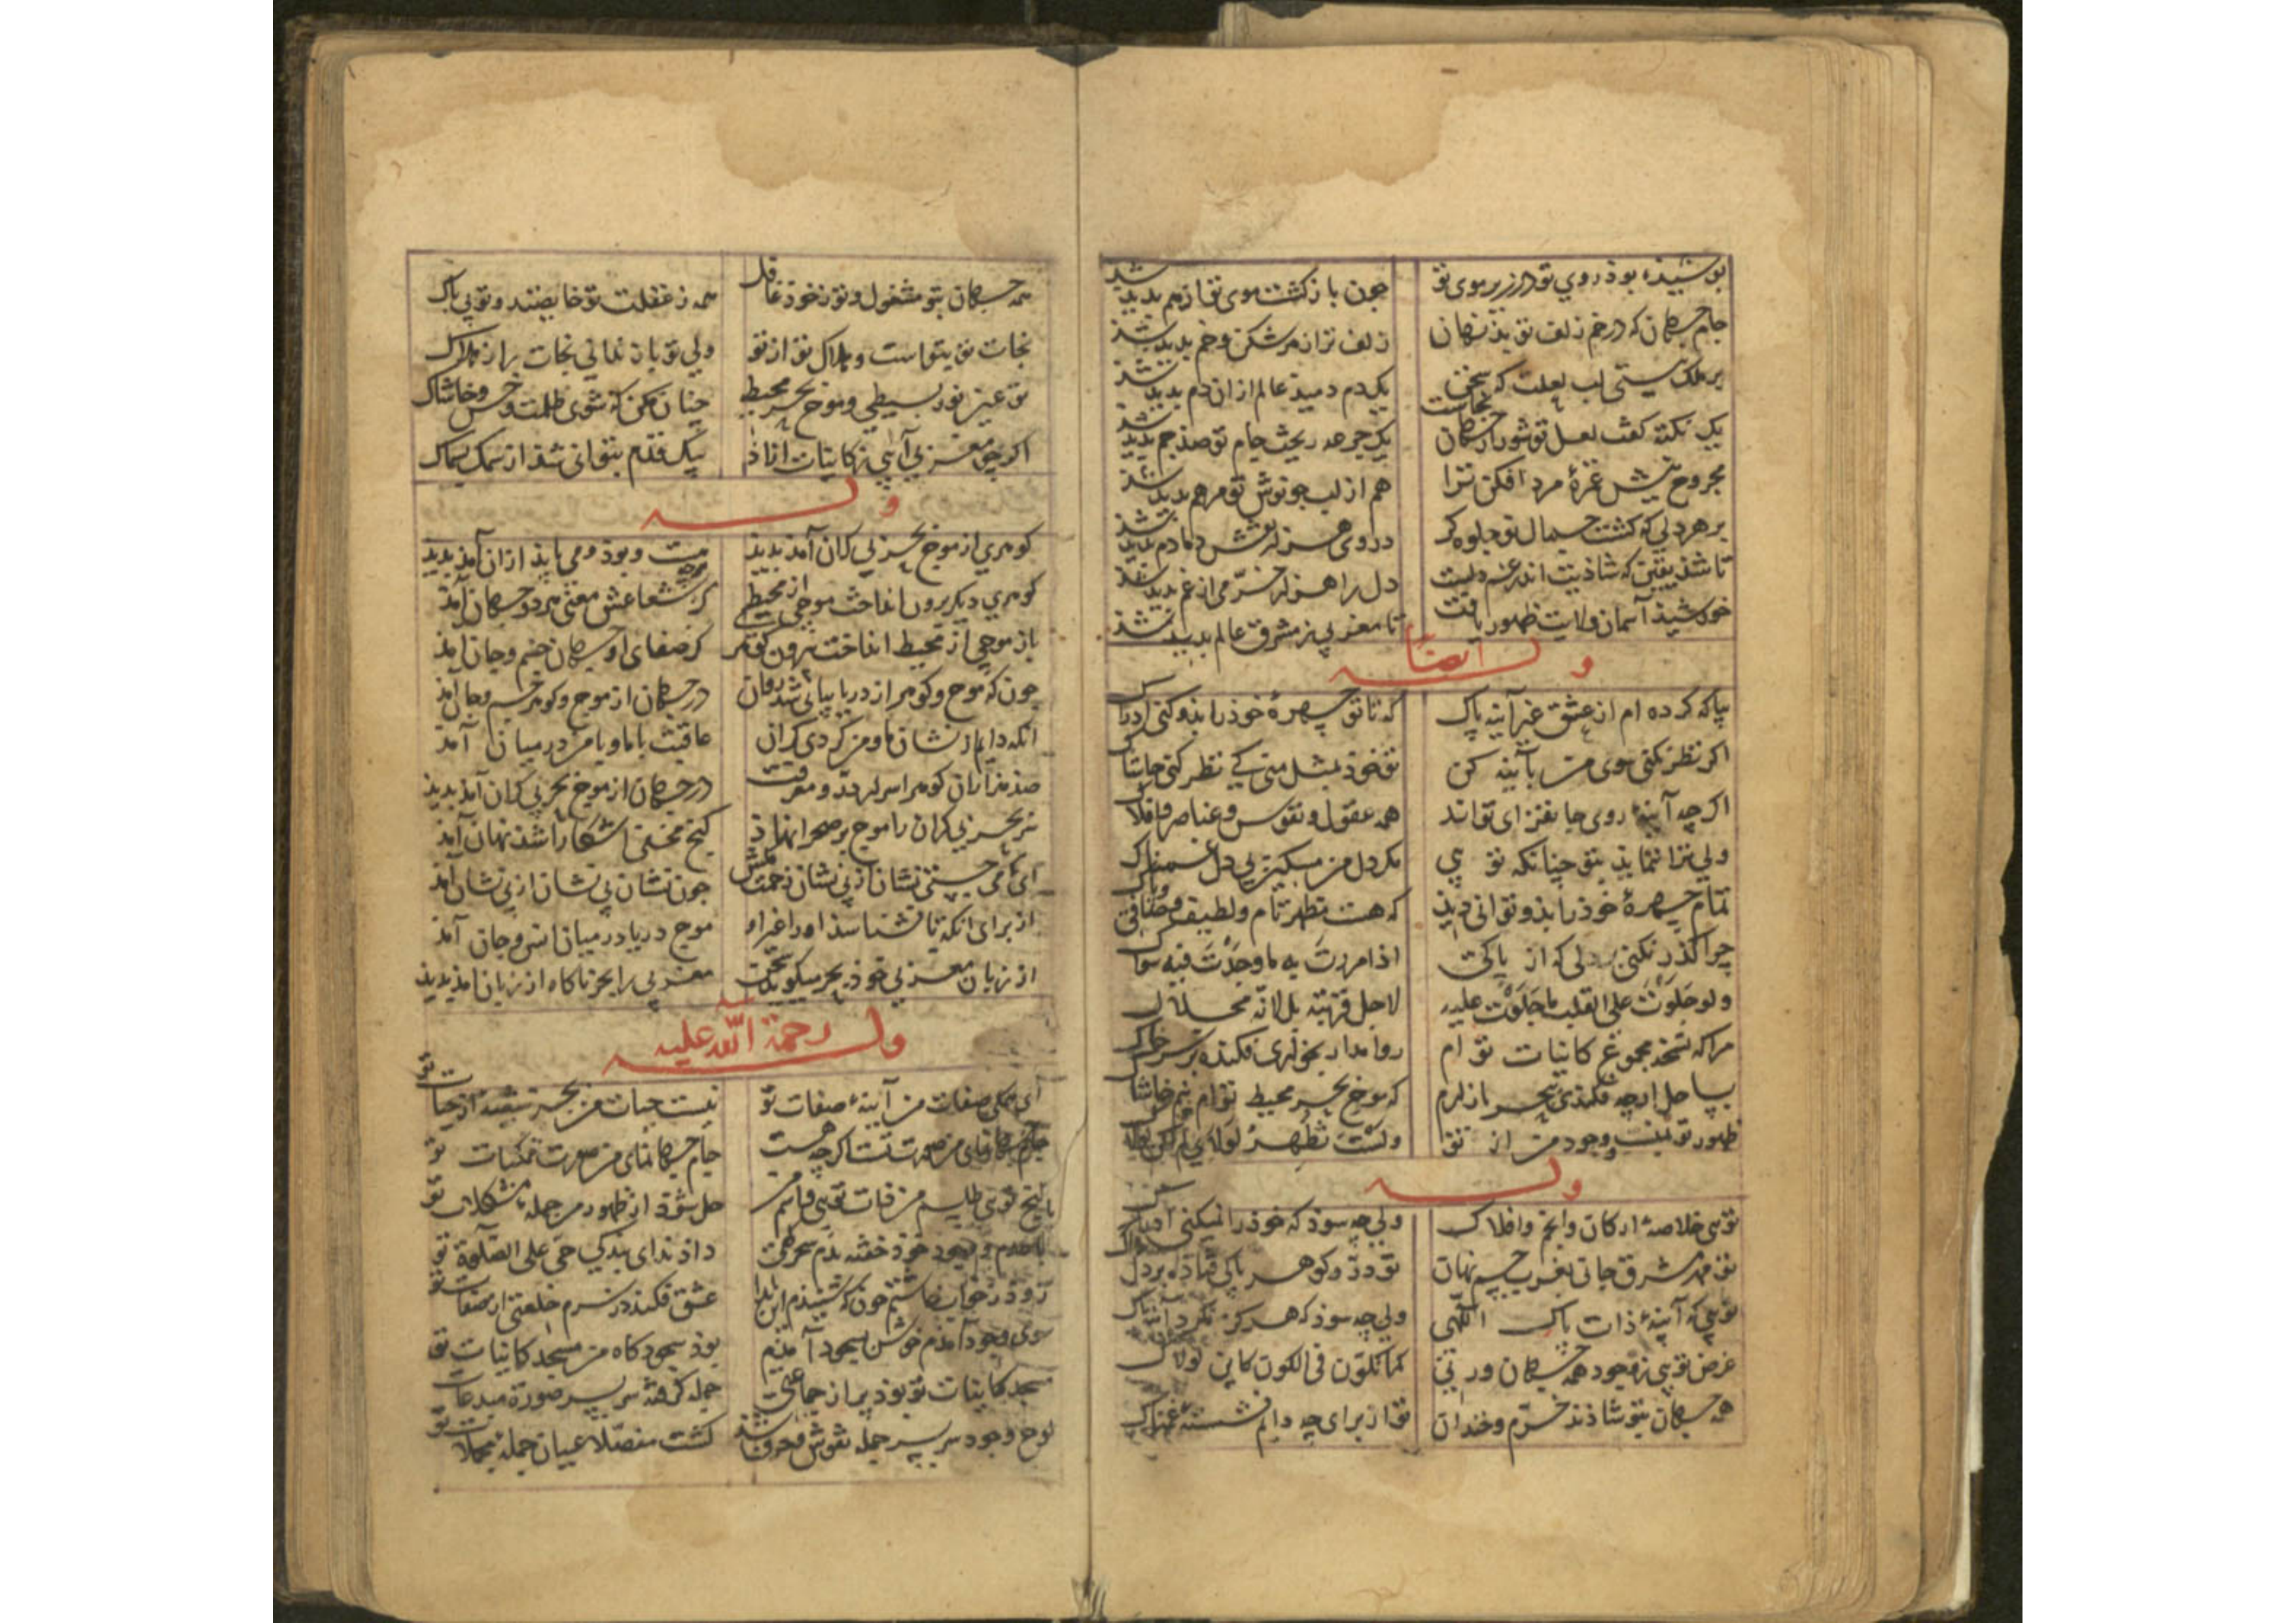 پوشیذه بوذ روی تو در زیر موی تو چون باز کشت موی تو از هم بدید شد
جام جهان که در خم زلف تو بذ نهان زلف ترا ز هر شکن و خم بدید شد
بر ملک نیستی لب لعلت که یکدم دمید عالم از ان دم بدید شد
یک نکته کفت لعل تو شور از جهان بخاست یک جرعه ریخت جام تو صذ جم بدید شد
مجروح نیش غمزهٔ مرد افکن ترا هم از لب چو نوش تو مرهم بدید شد
بر هر دلی که کشت جمال تو جلوه کر در وی هزار نقش دمادم بدید شد
تا شذ یقین که شاذیت اندر غم دلست دل را هزار خرّمی از غم بدید شد
خورشیذ آسمان ولایت ظهور یافت تا مغربی ز مشرق عالم بدید شد
وله ایضاً
بیا که کرده ام از عشق غیر آینه پاک که تا تو چهرهٔ خوذ را بذو کنی ادراک
اکر نظر نکنی سوی من بآینه کن تو خوذ بمثل منی کی نظر کنی حاشاک
اکرچه آینهٔ روی جانفزای تواند همه عقول و نفوس و عناصر و افلاک
ولی ترا ننمایذ بتو چنانکه تویی مکر دل من مسکین بی دل غمناک
تمام چهرهٔ خوذ را بذو توانی دیذ که هست مظهر تام و لطیف و صافی و پاک
چرا کذر نکنی بر دلی که از پاکی اذا مررت به ما وجدت فیه سواک
ولو جلوت علی القلب ما جلوت علیه لاجل قربته بل لانه مجلاک
مرا که نسخهٔ مجموع کاینات توام روا مدار بخواری فکنده بر سر خاک
بساحل ارچه فکندی ببحر بازارم که موج بحر محیط توام نیم خاشاک
ظهور تو بمنست و وجود من از تو ولست تظهر لولای لم اکن لولاک
وله
تویی خلاصهٔ ارکان و انجم و افلاک ولی چه سوذ که خوذ را نمیکنی ادراک
تو مهر مشرق جانی بغرب جسم نهان تو درّ و کوهر پاکی فتاذه در دل خاک
تویی که آینهٔ ذات پاک اللّهی ولی چه سوذ که هرکز نکردی آینه پاک
غرض تویی ز وجود همه جهان ورنی لما تکون فی الکون کاین لولاک
همه جهان بتو شاذند خرّم و خندان تو از برای چه دایم نشستهٔ غمناک
همه جهان بتو مشغول و تو ز خوذ غافل همه ز غفلت تو خایفند و تو بی باک
نجات تو بتو است و هلاک تو از تو ولی تو باز ندانی نجات را ز هلاک
تو عین نور بسیطی و موج بحر محیط چنان مکن که شوی ظلمت و خس و خاشاک
اکر چو مغربی آیی ز کاینات ازاذ بیک قدم بتوانی شذ از سمک بسماک
وله
کوهری از موج بحر بی کران آمذ بدید هرچه هست و بوذ و می بایذ ازان آمذ بدید
کوهری دیکر برون انداخت موجی از محیط کز شعاعش معنی هر دو جهان آمذ
باز موجی از محیط انداخت بیرون کوهر کز صفای او جهان جسم و جان آمذ
چون که موج و کوهر از دریا پیاپی شد روان در جهان از موج و کوهر جسم و جان آمذ
انکه دایم از نشان ما و من کردی کران عاقبت با ما و با من در میان آمذ
صذ هزاران کوهر اسرار درّ و معرفت در جهان از موج بحر بی کران آمذ بدید
بحر بی کران را موج بر صحرا نهاذ کنج مخفی آشکارا شذ نهان آمذ
ای که می جستی نشان از بی نشان زحمت مکش چون نشان بی نشان از بی نشان آمذ
از برای انکه تا نشناسذ او را غیر او موج دریا در میان انس و جان آمذ
از زبان مغربی خوذ بحر میکوید سخن مغربی را بحر ناکاه از زبان امذ بدید
وله رحمة اللّه علیه
ای همکی صفات من آینهٔ صفات تو نیست حیات من بجز شعبهٔ از حیات تو
جام جهان نمای من صورت تست اکرچه هست جام جهان نمای من صورت ممکنات تو
کنج تویی طلسم من ذات تویی و اسم من حل شوذ از ظهور من جمله مشکلات تو
با عدم وجود خوذ خفته بدم سحرکهی داذ ندای بندکی حیّ علی الصلوة تو
زوذ ز خواب خاستم چون که شنیذم این ندا عشق فکند در برم خلعتی از صفات تو
سوی وجود آمدم خوش بسجود آمذم بوذ سجودکاه من مسجد کاینات تو
مسجد کاینات تو بوذ پر از جماعتی جمله کرفته سر بسر صورة مبدعات تو
لوح وجود سر بسر جمله نقوش و حرف شد کشت مفصّلا عیان جمله مجملات تو